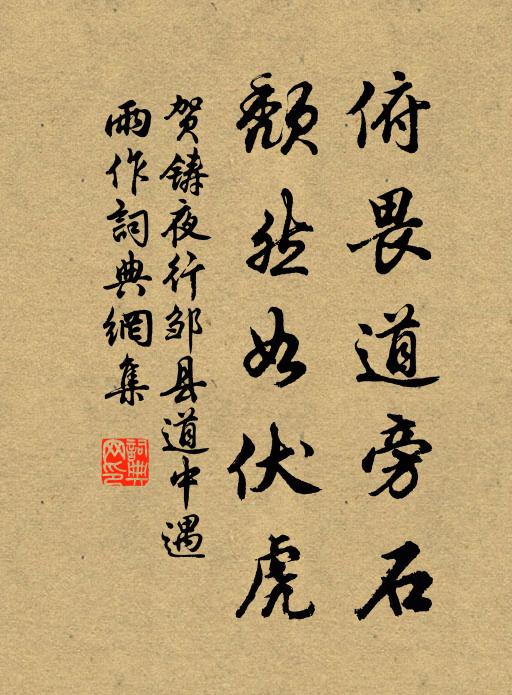 俯畏道旁石
颓然如伏虎
贺铸夜行邹县道中遇
雨作詞典網集
詞典
网印